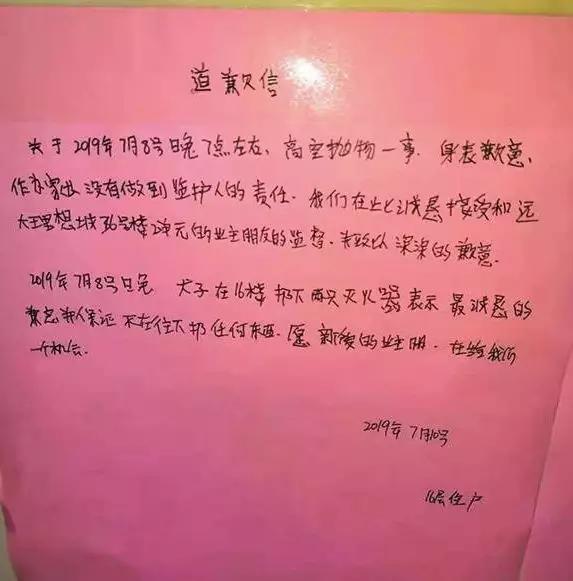 道歉信
关于2019年7月8号晚7点左右、高空抛物一事. 身表歉意,
作为家长没有做到监护人的责任. 我们在此诚恳接受和远
大理想城36号楼2单元的业主朋友的监督. 并致以深深的歉意.
2019年7月8号晚 犬子在16楼扔下两只灭火器表示 最诚恳的
歉意并保证 不在往下扔任何东西. 愿 新俊的业主朋. 在给我们
一个机会.
2019年7月10号
16层住户